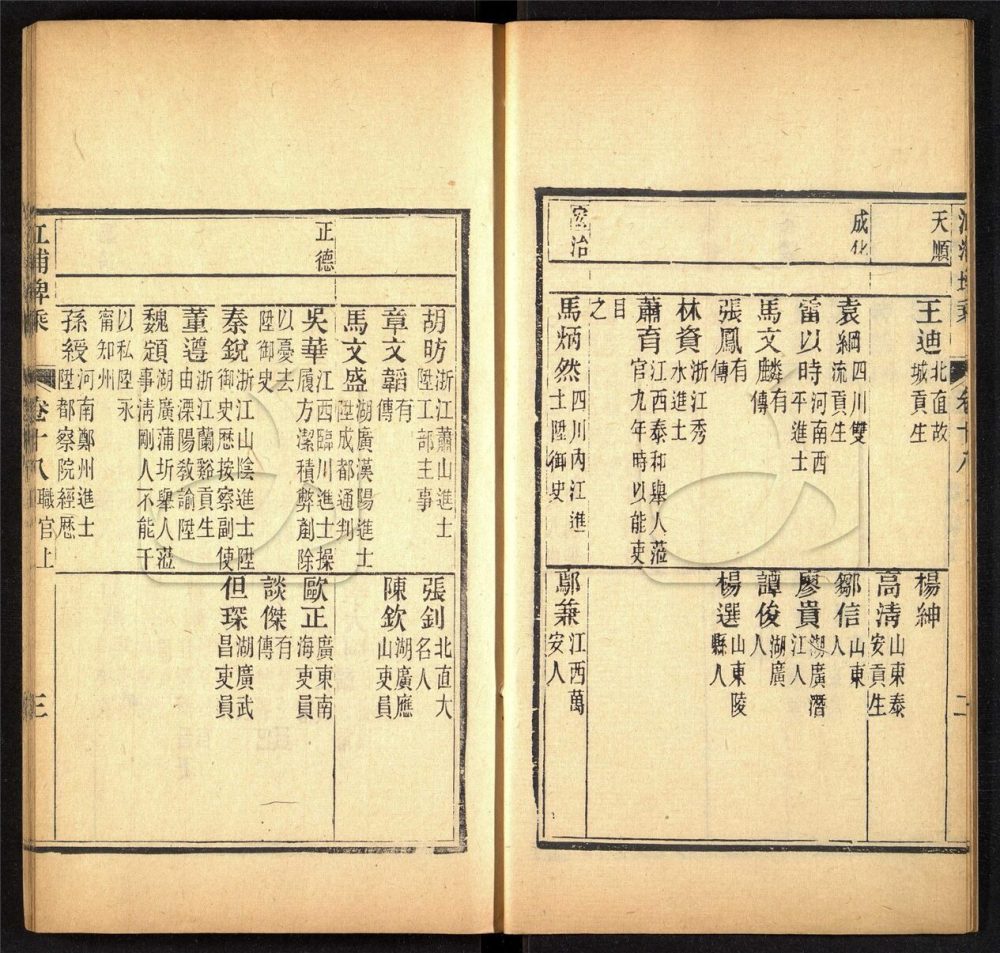 天順
王迪 北直故城貢生
楊紳
高清 山東泰安貢生
成化
袁綱 四川雙流貢生
鄒信 山東人
雷以時 河南西平進士
廖貴 湖廣潛江人
馬文麟 有傳
譚俊 湖廣人
張鳳 有傳
楊選 山東陵縣人
林資 浙江秀水進士
蕭育 江西泰和舉人蒞官九年時以能吏
目之
治
馬炳然 四川內江進士陞御史
鄢兼 江西萬安人
胡昉 浙江蕭山進士陞工部主事
張釗 北直大名人
章文韜 有傳
陳欽 湖廣應山吏員
馬文盛 湖廣漢陽進士陞成都通判
正德
吳華 江西臨川進士操履方潔積弊剷除
以憂去陞御史
歐正 廣東南海吏員
談傑 有傳
秦銳 浙江山陰進士陞御史歷按察副使
但琛 湖廣武昌吏員
董遵 浙江蘭谿貢生由溧陽教諭陞
魏頠 湖廣蒲圻舉人蒞事清剛人不能干
以私陞永甯知州
孫綬 河南鄭州進士陞都察院經歷
江浦埤乘 卷十八 職官上 三